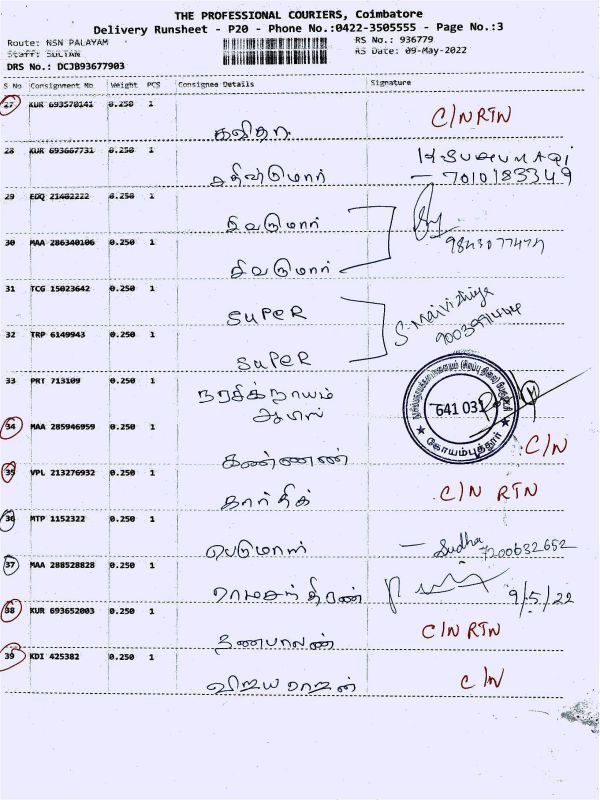 THE PROFESSIONAL COURIERS, Coimbatore
Delivery Runsheet - P20 - Phone No.:0422-3505555 - Page No.:3
Route: NSN PALAYAM RS No.: 936779
Staff: SULTAN RS Date: 09-May-2022
DRS No.: DCJB93677903
S No Consignment No Weight PCS Consignee Details Signature
27 KUR 693570141 0.250 1 கவிதா C/N RTN
28 KUR 693667731 0.250 1
- 7010183349
29 EDQ 21402222 0.250 1 சிவகுமார்
30 MAA 286340106 0.250 1 சிவகுமார் 9843077474
31 TCG 15023642 0.250 1 SUPER S. Maivizhiya
32 TRP 6149943 0.250 1 SUPER
33 PRT 713109 0.250 1
641 031
கோயம்புத்தூர்
34 MAA 285946959 0.250 1 கண்ணன் C/N
35 VPL 213276932 0.250 1 கார்திக் C/N RTN
36 MTP 1152322 0.250 1 பெருமாள் - Sudha
7200632652
37 MAA 288528828 0.250 1 ராமசந்திரன் 9/5/22
38 KUR 693652003 0.250 1 குணபாலன் C/N RTN
39 KDI 425382 0.250 1 விஜயராஜன் C/N